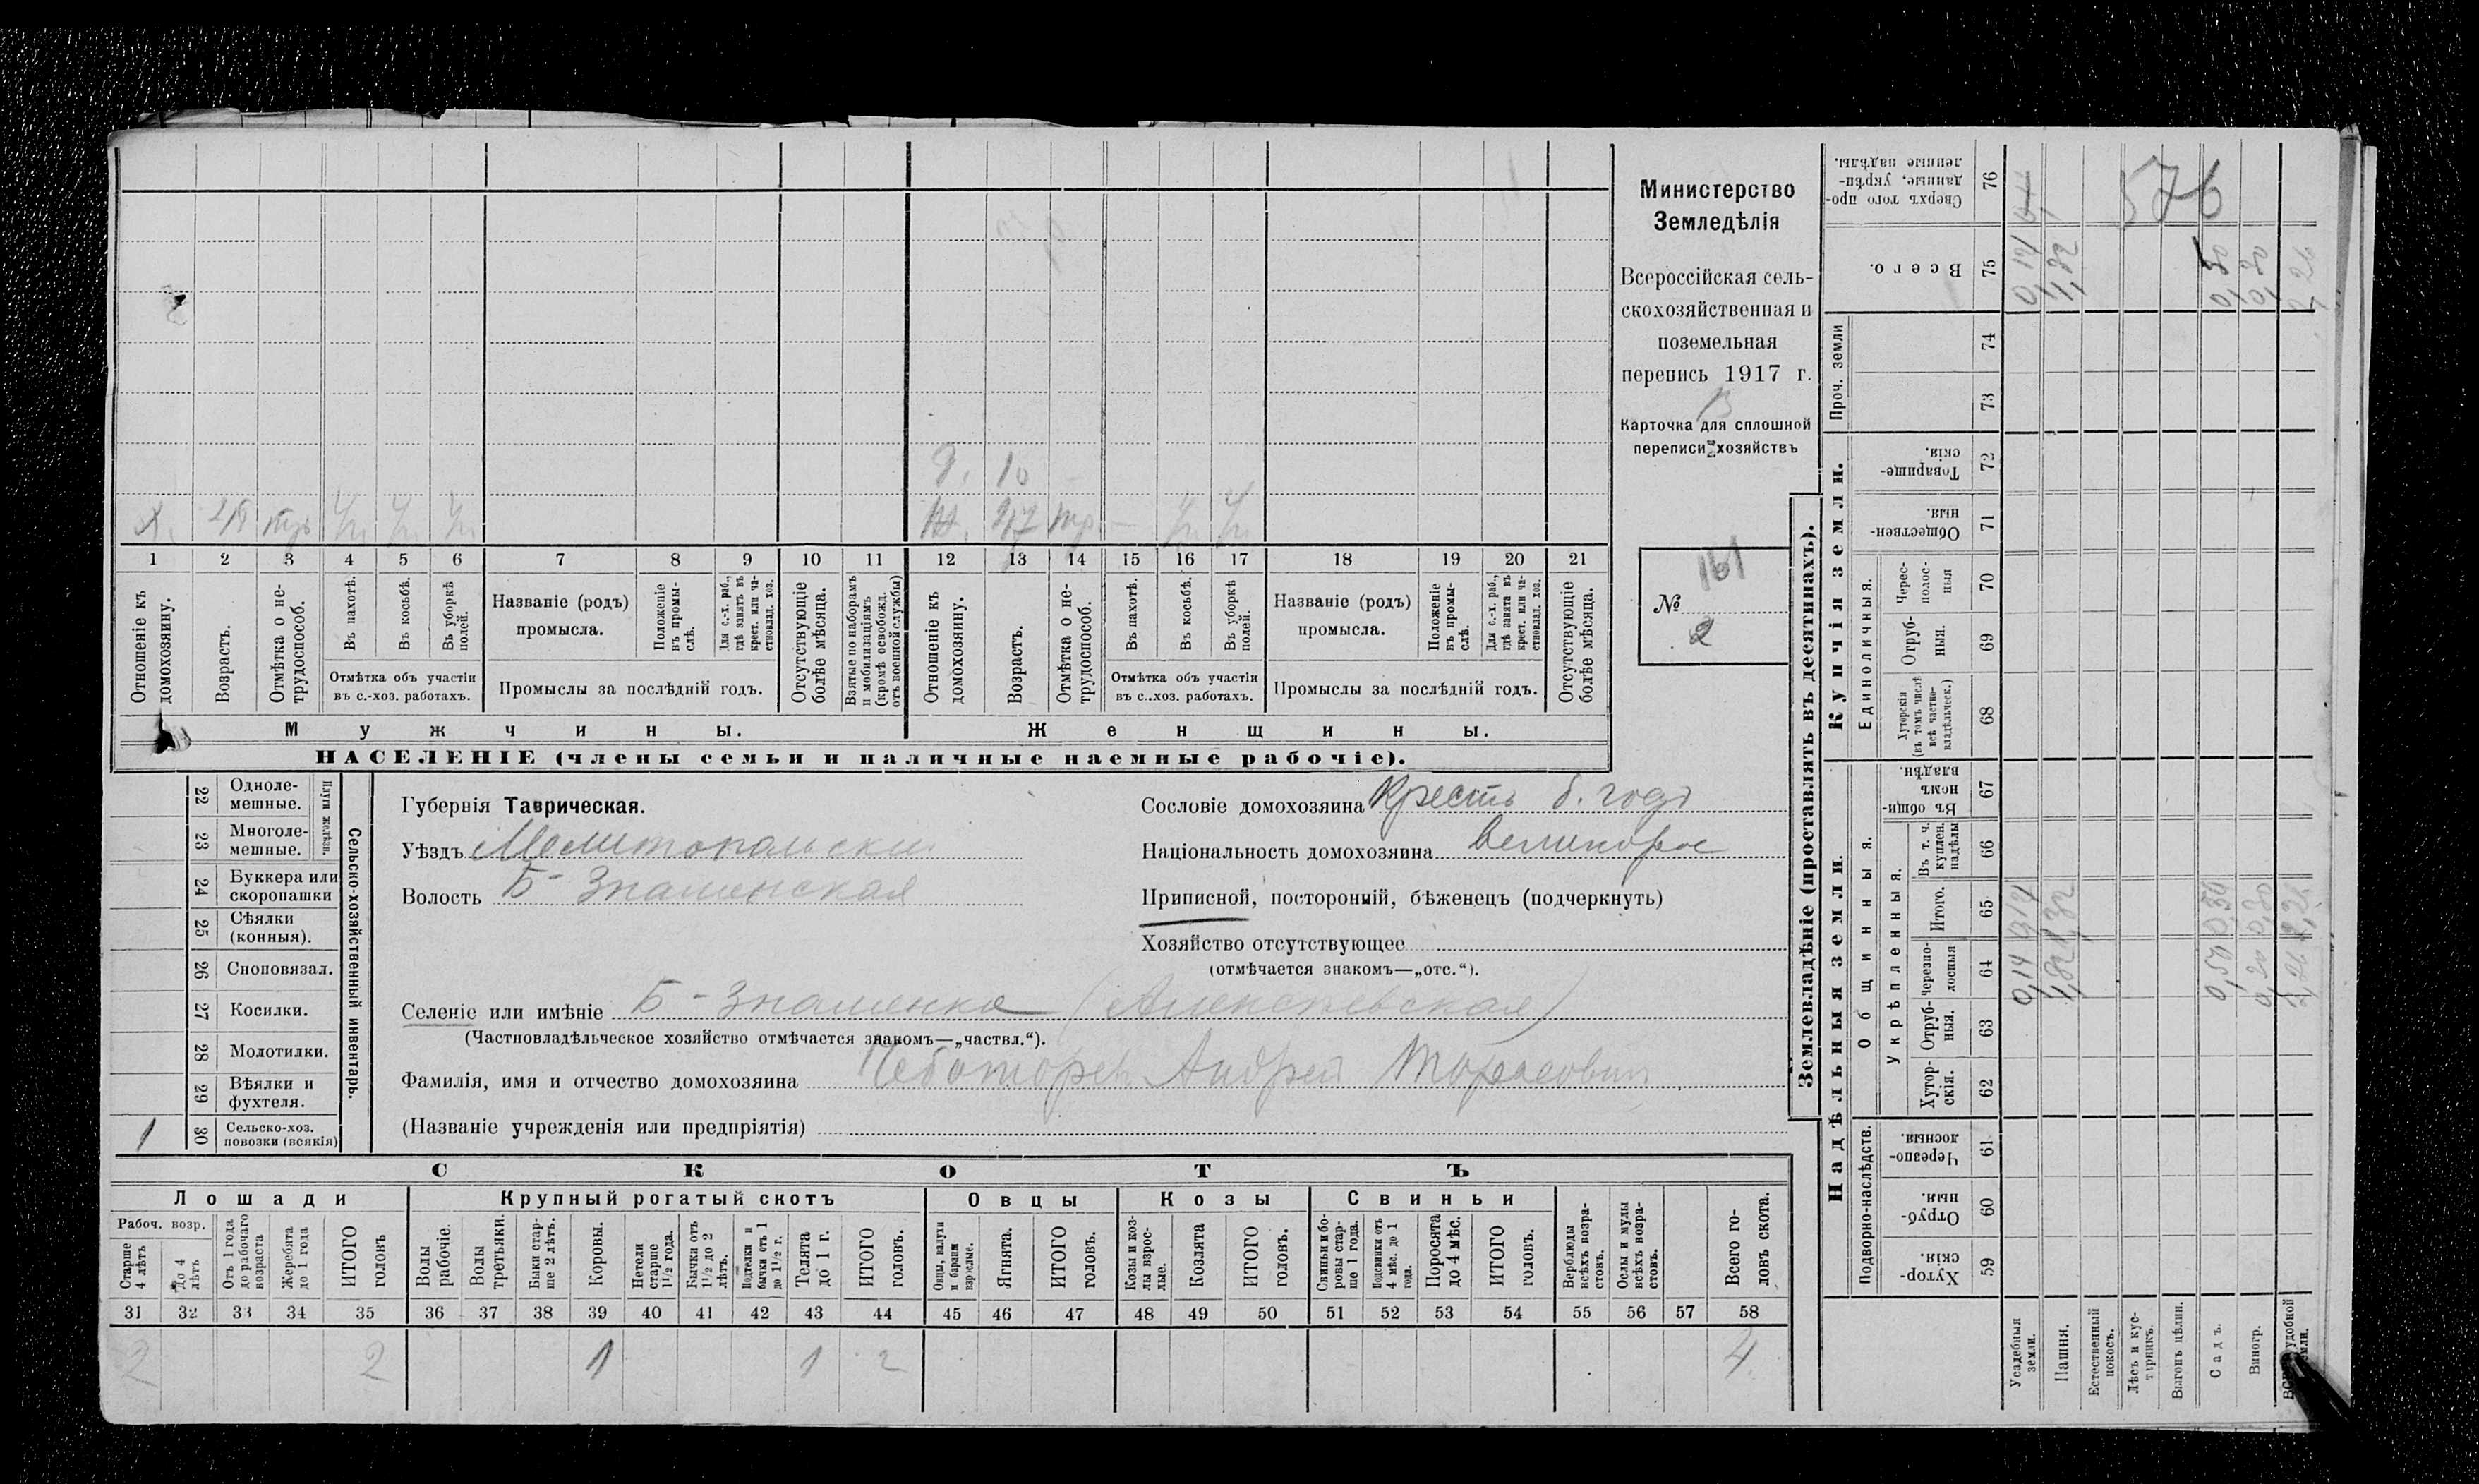 Министерство
Земледѣлія
Всероссійская сель-
скохозяйственная и
поземельная
перепись 1917 г.
Карточка для сплошной
переписи хозяйствъ
161
№
2
Х. тр. 
Д. 10
Ж. 27 тр.
1 2 3 4 5 6 7 8 9 10 11 12 13 14 15 16 17 18 19 20 21
Отношеніе къ домохозяину.
Возрастъ.
Отмѣтка о не-трудоспособ.
Въ пахотѣ.
Въ косьбѣ.
Въ уборкѣ полей.
Отмѣтка объ участіи
въ с.-хоз. работахъ.
Названіе (родъ)
промысла.
Положеніе въ промы-слѣ.
Для с.-х. раб., гдѣ занятъ въ крест. или ча-стновлад. хоз.
Промыслы за послѣдній годъ.
Отсутствующіе болѣе мѣсяца.
Взятые по наборамъ и мобилизаціямъ (кромѣ освобожд. отъ военной службы)
Отношеніе къ домохозяину.
Возрастъ.
Отмѣтка о не-трудоспособ.
Въ пахотѣ.
Въ косьбѣ.
Въ уборкѣ полей.
Отмѣтка объ участіи
въ с..хоз. работахъ.
Названіе (родъ)
промысла.
Положеніе въ промы-слѣ.
Для с.-х. раб., гдѣ занята въ крест. или ча-стновлад. хоз.
Промыслы за послѣдній годъ.
Отсутствующіе болѣе мѣсяца.
Мужчины.
Женщины.
НАСЕЛЕНІЕ (члены семьи и наличные наемные рабочіе).
22 Одноле-мешные.
23 Многоле-мешные.
Плуги желѣзн.
24 Буккера или скоропашки
25 Сѣялки (конныя).
26 Сноповязал.
27 Косилки.
28 Молотилки.
29 Вѣялки и фухтеля.
1 30 Сельско-хоз. повозки (всякія)
Сельско-хозяйственный инвентарь.
Губернія Таврическая.
Уѣздъ Мелитопольскій
Волость Б-Знаменская
Сословіе домохозяина Крест
Національность домохозяина Великорос
Приписной, посторонній, бѣженецъ (подчеркнуть)
Хозяйство отсутствующее
(отмѣчается знакомъ—„отс.“).
Селеніе или имѣніе Б-Знаменка
(Частновладѣльческое хозяйство отмѣчается знакомъ—„частвл.“).
Фамилія, имя и отчество домохозяина Чеботоревъ Андрей Торасовичъ
(Названіе учрежденія или предпріятія)
СКОТЪ
Лошади
Крупный рогатый скотъ
Овцы
Козы
Свиньи
Рабоч. возр.
Старше 4 лѣтъ
до 4 лѣтъ
Отъ 1 года до рабочаго возраста
Жеребята до 1 года
ИТОГО головъ
Волы рабочіе.
Волы третьяки.
Быки стар-ше 2 лѣтъ.
Коровы.
Нетели старше 1 1/2 года.
Бычки отъ 1 1/2 до 2 лѣтъ.
Подтелки и бычки отъ 1 до 1 1/2 г.
Телята до 1 г.
ИТОГО головъ.
Овцы, валухи и бараны взрослые.
Ягнята.
ИТОГО головъ.
Козы и коз-лы взрос-лые.
Козлята
ИТОГО головъ.
Свиньи и бо-ровы стар-ше 1 года.
Подсвинки отъ 4 мѣс. до 1 года.
Поросята до 4 мѣс.
ИТОГО головъ.
Верблюды всѣхъ возра-стовъ.
Ослы и мулы всѣхъ возра-стовъ.
Всего го-ловъ скота.
31 32 33 34 35 36 37 38 39 40 41 42 43 44 45 46 47 48 49 50 51 52 53 54 55 56 57 58
2 2 1 1 2 4
Землевладѣніе (проставлять въ десятинахъ).
Купчія земли.
Надѣльныя земли.
76 Сверхъ того про-данные, укрѣп-ленные надѣлы.
576
75 Всего.
0,14 1,82 0,50 0,20
Проч. земли
74
73
72 Товарище-скія.
71 Обществен-ныя.
Единоличныя.
70 Черес-полос-ныя
69 Отруб-ныя.
68 Хуторскія (въ томъ числѣ всѣ частно-владѣльческ.)
Общинныя.
67 Въ общи-номъ владѣн.
Укрѣпленныя.
66 Въ т. ч. куплен. надѣлы
65 Итого.
64 Черезпо-лосныя
0,14 1,82 0,50 0,20
63 Отруб-ныя.
62 Хутор-скія.
Подворно-наслѣдств.
61 Черезпо-лосныя.
60 Отруб-ныя.
59 Хутор-скія.
Усадебныя земли.
Пашня.
Естественный покосъ.
Лѣсъ и кус-тарникъ.
Выгонъ цѣлин.
Садъ.
Виногр.
удобной